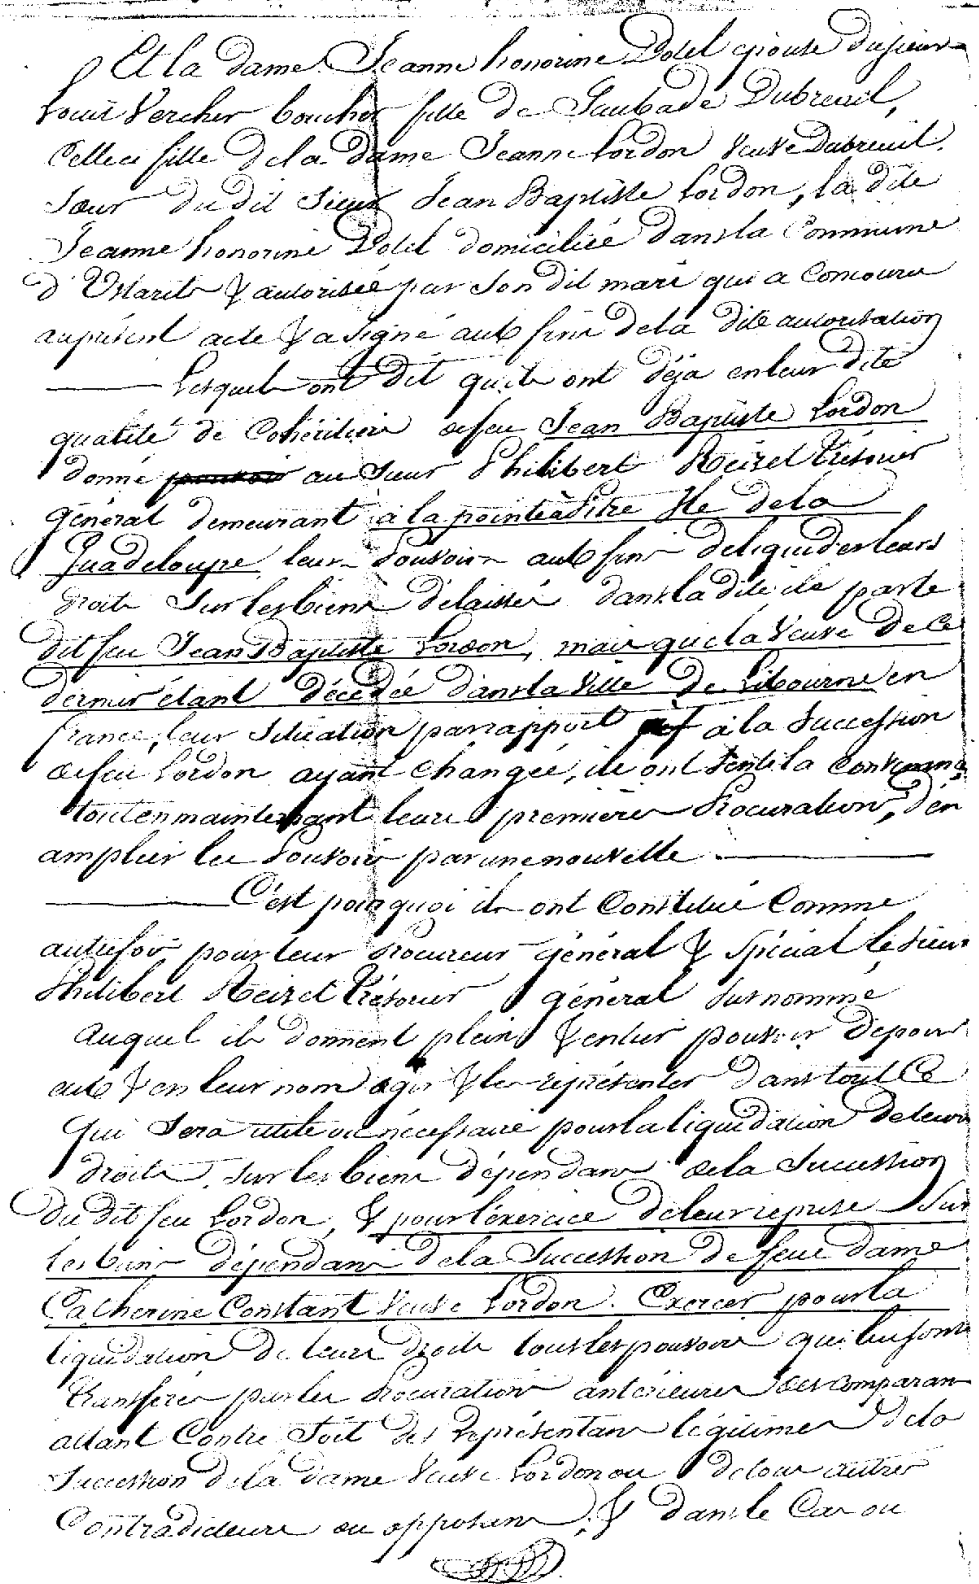 Et la dame Jeanne honorine Dotel epouse du sieur
Louis Vercher boucher fille de Gaubade Dubreuil,
Celle ci fille de la dame Jeanne Lordon veuve Dubreuil.
Sœur du dit Sieur Jean Baptiste Lordon, la dite
Jeanne honorine Dotel domiciliée dans la Commune
d'Ustarits & autorisée par son dit mari qui a concouru
au présent acte & a signé aux fins de la dite autorisation
Lesquels ont dit qu'ils ont déja en leur dite
qualité de Cohéritiers de feu Jean Baptiste Lordon
donné pouvoir au Sieur Philibert Reizet Trésorier
général demeurant à la pointe à Pitre Ile de la
Guadeloupe leurs Pouvoirs aux fins de liquider leurs
droits sur les biens délaissés dans la dite ile par le
dit feu Jean Baptiste Lordon, mais que la Veuve de ce
dernier étant décédée dans la ville de Libourne en
france, leur Situation par rapport à la Succession
de feu Lordon ayant changée, ils ont senti la Convenance
tout en maintenant leurs premières Procurations, d'en
amplier les Pouvoirs par une nouvelle.
C'est pourquoi ils ont Constitué Comme
autrefois pour leur Procureur général & spécial le sieur
Philibert Reizet Trésorier général susnommé
auquel ils donnent plein & entier pouvoir de pour
eux & en leur nom agir & les représenter dans tout Ce
qui sera utile ou nécessaire pour la liquidation de leurs
droits, sur les biens dépendans de la Succession
du dit feu Lordon, & pour l'exercice de leur reprise sur
les biens dépendans de la Succession de feue dame
Catherine Constant Veuve Lordon. Exercer pour la
liquidation de leurs droits tous les pouvoirs qui lui sont
transférés par les Procurations antérieures des comparans
allant Contre Soit des représentans légitimes de la
Succession de la dame Veuve Lordon ou de tous autres
Contradicteurs ou opposans, & dans le Cas ou